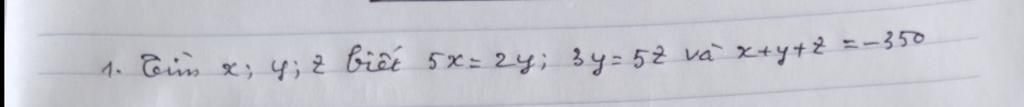 1. Tìm x; y; z biết 5x = 2y; 3y = 5z và x+y+z = -350